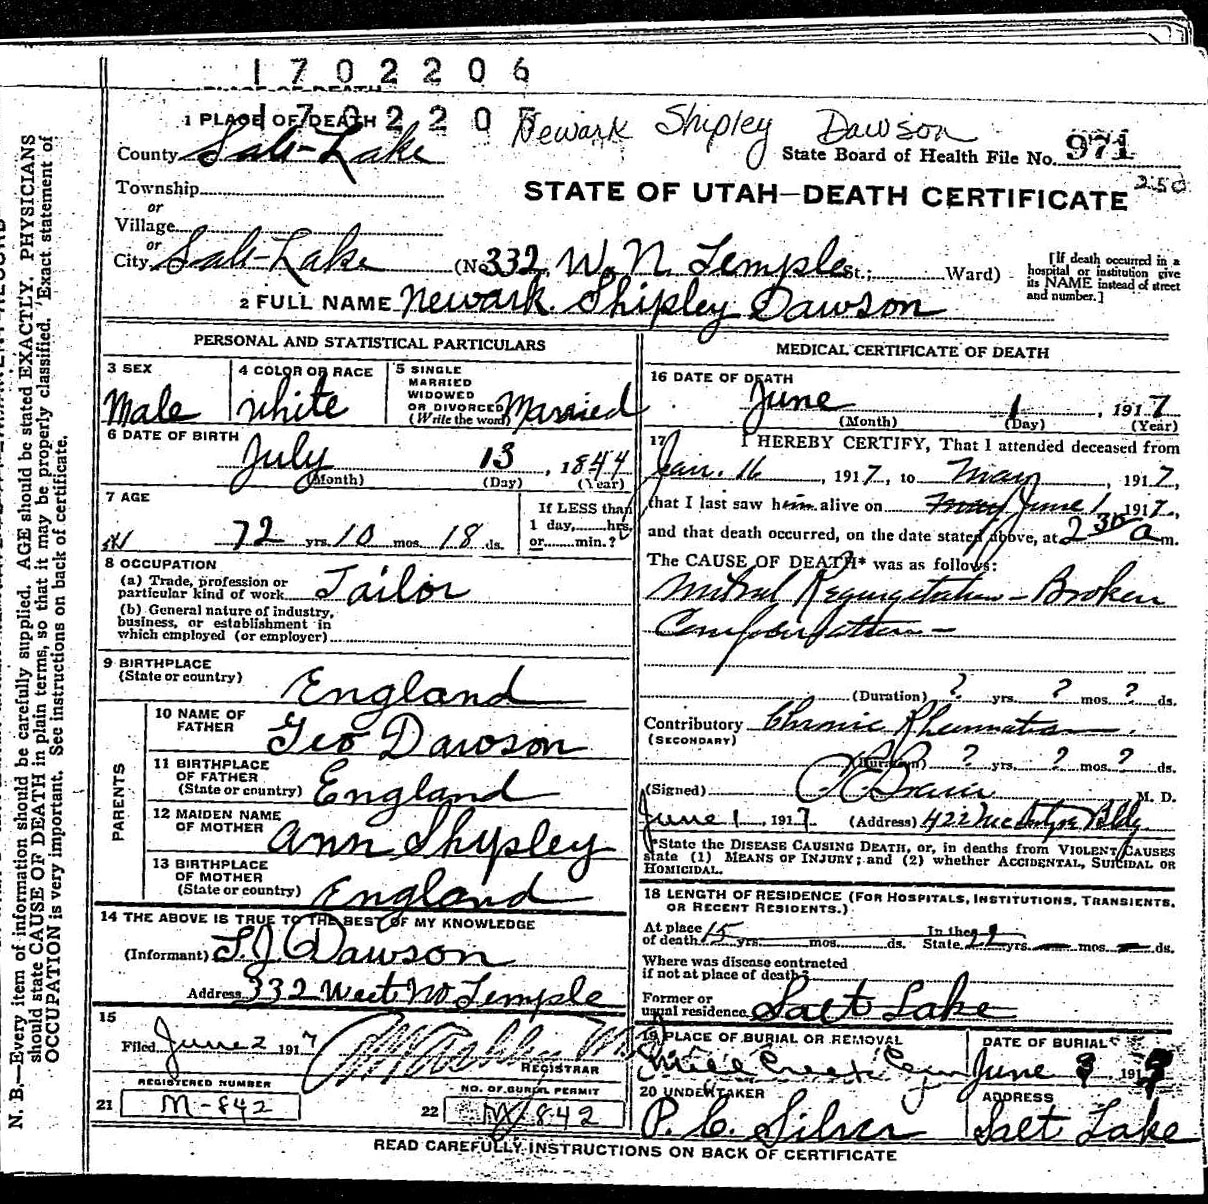 1702206
PLACE OF DEATH
170220
1 PLACE OF DEATH
Newark Shipley Dawson
County Salt Lake
State Board of Health File No. 971
250
Township
or
Village
or
STATE OF UTAH—DEATH CERTIFICATE
City Salt Lake (No. 332 W. N. Temple St.; Ward)
[If death occurred in a
hospital or institution give
its NAME instead of street
and number.]
2 FULL NAME Newark Shipley Dawson
PERSONAL AND STATISTICAL PARTICULARS
3 SEX
Male
4 COLOR OR RACE
White
5 SINGLE
MARRIED
WIDOWED
OR DIVORCED
(Write the word) Married
6 DATE OF BIRTH
July 13, 1844
(Month) (Day) (Year)
7 AGE
72 yrs. 10 mos. 18 ds.
If LESS than
1 day, hrs.
or min.?
8 OCCUPATION
(a) Trade, profession or
particular kind of work Tailor
(b) General nature of industry,
business, or establishment in
which employed (or employer)
9 BIRTHPLACE
(State or country) England
PARENTS
10 NAME OF
FATHER Geo Dawson
11 BIRTHPLACE
OF FATHER
(State or country) England
12 MAIDEN NAME
OF MOTHER Ann Shipley
13 BIRTHPLACE
OF MOTHER
(State or country) England
14 THE ABOVE IS TRUE TO THE BEST OF MY KNOWLEDGE
(Informant) Dawson
Address 332 West No Temple
15
Filed June 2 1917
REGISTRAR
REGISTERED NUMBER
21 M-842
NO. OF BURIAL PERMIT
22 M 842
MEDICAL CERTIFICATE OF DEATH
16 DATE OF DEATH
June 1, 1917
(Month) (Day) (Year)
17 I HEREBY CERTIFY, That I attended deceased from
Jan. 16, 1917, to May, 1917,
that I last saw him alive on May June 1 1917,
and that death occurred, on the date stated above, at 2 30 a m.
The CAUSE OF DEATH* was as follows:
Mitral Regurgitation - Broken
Compensation -
(Duration) ? yrs. ? mos. ? ds.
Contributory Chronic Rheumatism
(SECONDARY)
(Duration) ? yrs. ? mos. ? ds.
(Signed) M. D.
June 1, 1917 (Address) 422 McIntyre Bldg
*State the DISEASE CAUSING DEATH, or, in deaths from VIOLENT CAUSES
state (1) MEANS OF INJURY; and (2) whether ACCIDENTAL, SUICIDAL OR
HOMICIDAL.
18 LENGTH OF RESIDENCE (FOR HOSPITALS, INSTITUTIONS, TRANSIENTS,
OR RECENT RESIDENTS.)
At place In the
of death 15 yrs. mos. ds. State yrs. mos. ds.
Where was disease contracted
if not at place of death?
Former or
usual residence Salt Lake
19 PLACE OF BURIAL OR REMOVAL
Mill Creek Cem
DATE OF BURIAL
June 3 1917
20 UNDERTAKER
P. C. Silver
ADDRESS
Salt Lake
READ CAREFULLY INSTRUCTIONS ON BACK OF CERTIFICATE
N. B.—Every item of information should be carefully supplied. AGE should be stated EXACTLY. PHYSICIANS
should state CAUSE OF DEATH in plain terms, so that it may be properly classified. Exact statement of
OCCUPATION is very important. See instructions on back of certificate.